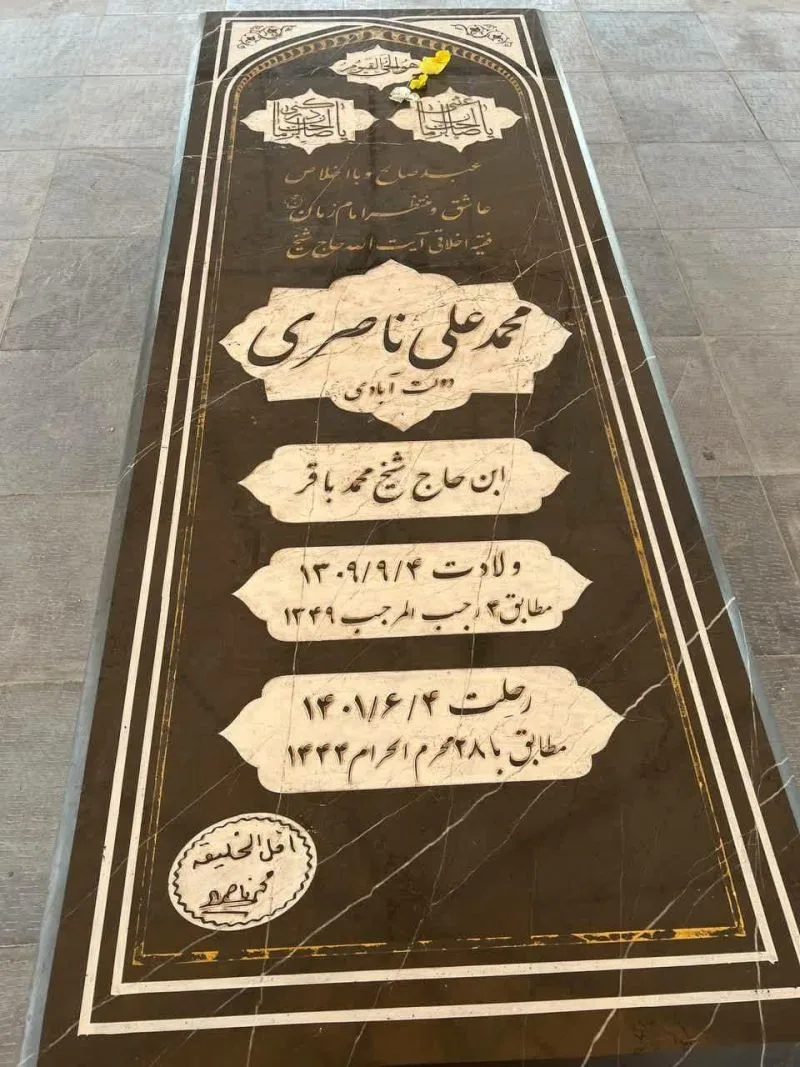 هو الحی القیوم
یا صاحب الزمان ادرکنی
یا صاحب الزمان اغثنی
عبد صالح و با اخلاص
عاشق و منتظر امام زمان (عج)
فقیه اخلاقی آیت الله حاج شیخ
محمد علی ناصری
دولت آبادی
ابن حاج شیخ محمد باقر
ولادت ۱۳۰۹/۹/۴
مطابق ۴ رجب المرجب ۱۳۴۹
رحلت ۱۴۰۱/۶/۴
مطابق با ۲۸ محرم الحرام ۱۴۴۴
اقل الخلیقه
محمد ناصری